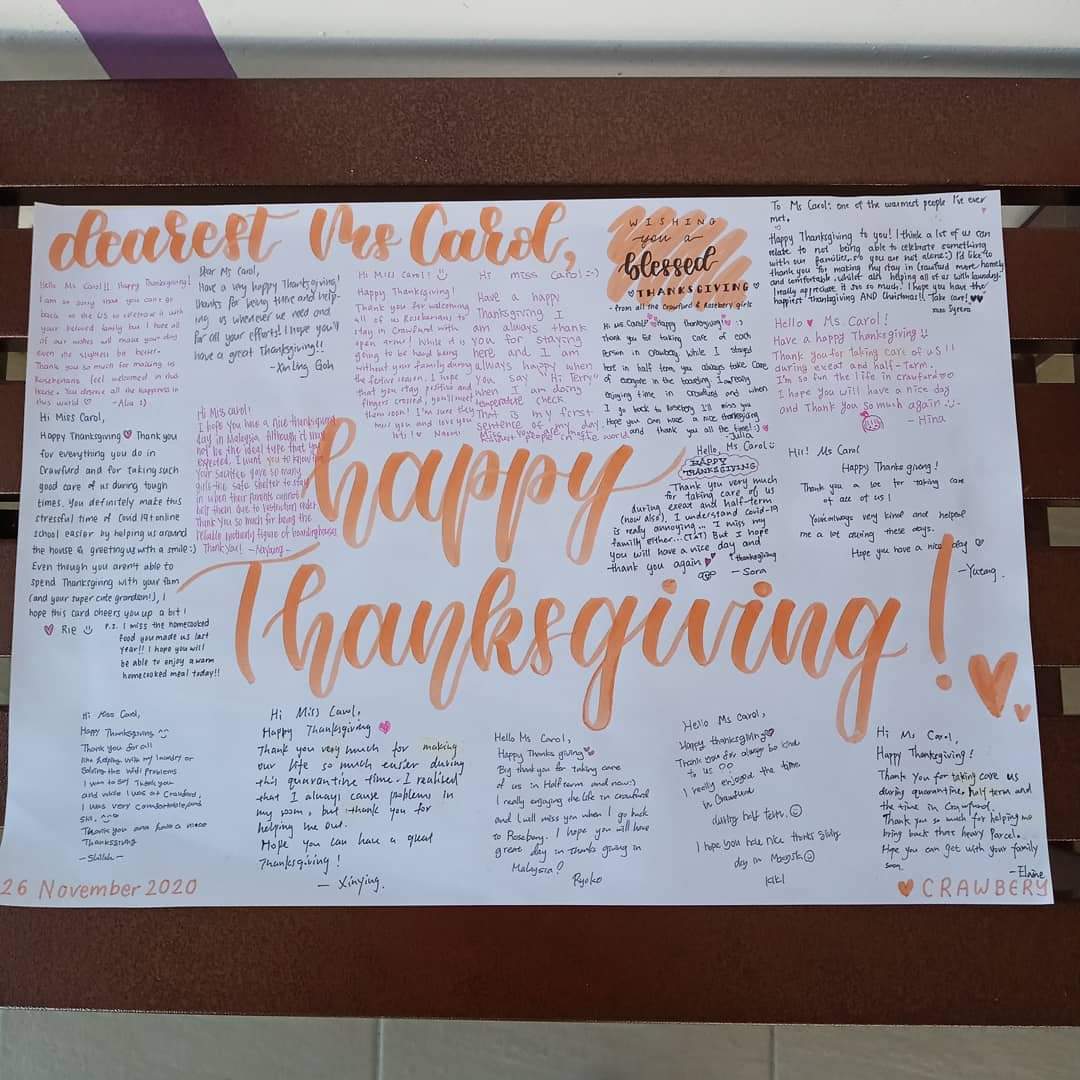 dearest Ms Carol,
Hello Ms Carol!! Happy Thanksgiving!
I am so sorry that you can't go
back to the US to celebrate it with
your beloved family but I hope all
of our wishes will make your day
even the slightest bit better.
Thank you so much for making us
Roseberians feel welcomed in this
house. You deserve all the happiness in
this world ♡
Dear Ms Carol,
Have a very happy Thanksgiving,
thanks for being there and help-
ing us whenever we need and
for all your efforts! I hope you'll
have a great Thanksgiving!!
-XinLing Goh
Hi Miss Carol! :)
Happy Thanksgiving!
Thank you for welcoming
all of us Roseberians to
stay in Crawfurd with
open arms! While it is
going to be hard being
without your family during
the festive season, I hope
that you stay positive and
fingers crossed, you'll meet
them soon! I'm sure they
miss you and love you
lots! ♡ Naomi
Hi miss Carol:-)
Have a happy
Thanksgiving I
am always thank
you for staying
here and I am
always happy when
you say "Hi Terry"
when I am doing
temperature check
That is my first
sentence of my day.
people in the world
WISHING
you a
blessed
♥ THANKSGIVING ♥
- from all the Crawfurd & Rosebery girls
Hi Ms Carol! Happy thanksgiving! :)
thank you for taking care of each
person in Crawbery. While I stayed
here in half term, you always take care
of everyone in the boarding. I really
enjoying time in Crawfurd and when
I go back to Rosebery I'll miss you
Hope you can have a nice thanksgiving
and thank you all the time! :)
-Julia
To Ms Carol: one of the warmest people I've ever
met.
Happy Thanksgiving to you! I think a lot of us can
relate to not being able to celebrate something
with our families, so you are not alone :) I'd like to
thank you for making my stay in Crawfurd more homely
and comfortable, whilst also helping all of us with laundry.
I really appreciate it so so much. I hope you have the
happiest Thanksgiving AND Christmas!! Take care! ♥♥
Hello ♥ Ms Carol!
Have a happy Thanksgiving :)
Thank you for taking care of us!!
during exeat and half-term.
I'm so fun the life in crawfurd
I hope you will have a nice day
and Thank you so much again
- Hina
Hi Miss Carol,
Happy Thanksgiving ♥ Thank you
for everything you do in
Crawfurd and for taking such
good care of us during tough
times. You definitely make this
stressful time of Covid 19 + online
school easier by helping us around
the house & greeting us with a smile :)
Even though you aren't able to
spend Thanksgiving with your fam
(and your super cute grandson!), I
hope this card cheers you up a bit!
♡ Rie :)
P.S. I miss the homecooked
food you made us last
year!! I hope you will
be able to enjoy a warm
homecooked meal today!!
Hi Miss Carol!
I hope you have a nice thanksgiving
day in Malaysia, although it may
not be the ideal type that you
expected. I want you to know that
your sacrifice gave so many
girls the safe shelter to stay
in when their parents cannot
help them due to restriction order
Thank you so much for being the
reliable motherly figure of boardinghouse
Thank you!
happy
Hello, Ms Carol :)
HAPPY
THANKSGIVING
Thank you very much
for taking care of us
during exeat and half-term
(now also). I understand covid-19
is really annoying... I miss my
family either... (TAT) But I hope
you will have a nice day and thanksgiving
thank you again ♥
- Sora
Hii! Ms Carol
Happy Thanksgiving!
Thank you a lot for taking care
of all of us!
You're always very kind and helped
me a lot during these days.
Hope you have a nice day ♡
Thanksgiving!
Hi Miss Carol,
Happy Thanksgiving :)
Thank you for all
like helping with my laundry or
Solving the Wifi Problems
I want to say Thank you
and while I was at Crawfurd,
I was very comfortable and
Thank you and have a nice
Thanksgiving
Hi Miss Carol,
Happy Thanksgiving ♥
Thank you very much for making
our life so much easier during
this quarantine time. I realised
that I always cause problems in
my room, but thank you for
helping me out.
Hope you can have a great
Thanksgiving!
- XinYing.
Hello Ms Carol,
Happy Thanks giving ♥
Big thank you for taking care
of us in Half term and now :)
I really enjoying the life in crawfurd
and I will miss you when I go back
to Rosebery. I hope you will have
great day in thanks giving in
Malaysia?
Ryoko
Hello Ms Carol,
Happy thanksgiving ♥
Thank you for always be kind
to us
I really enjoyed the time
in Crawfurd
during half term. :)
I hope you has nice thanks giving
day in :)
KIKI
Hi Ms Carol,
Happy Thanksgiving!
Thank You for taking care us
during quarantine, half term and
the time in Crawfurd.
Thank you so much for helping me
bring back that heavy Parcel.
Hope you can get with your family
soon.
-Elaine
26 November 2020
♥ CRAWBERY